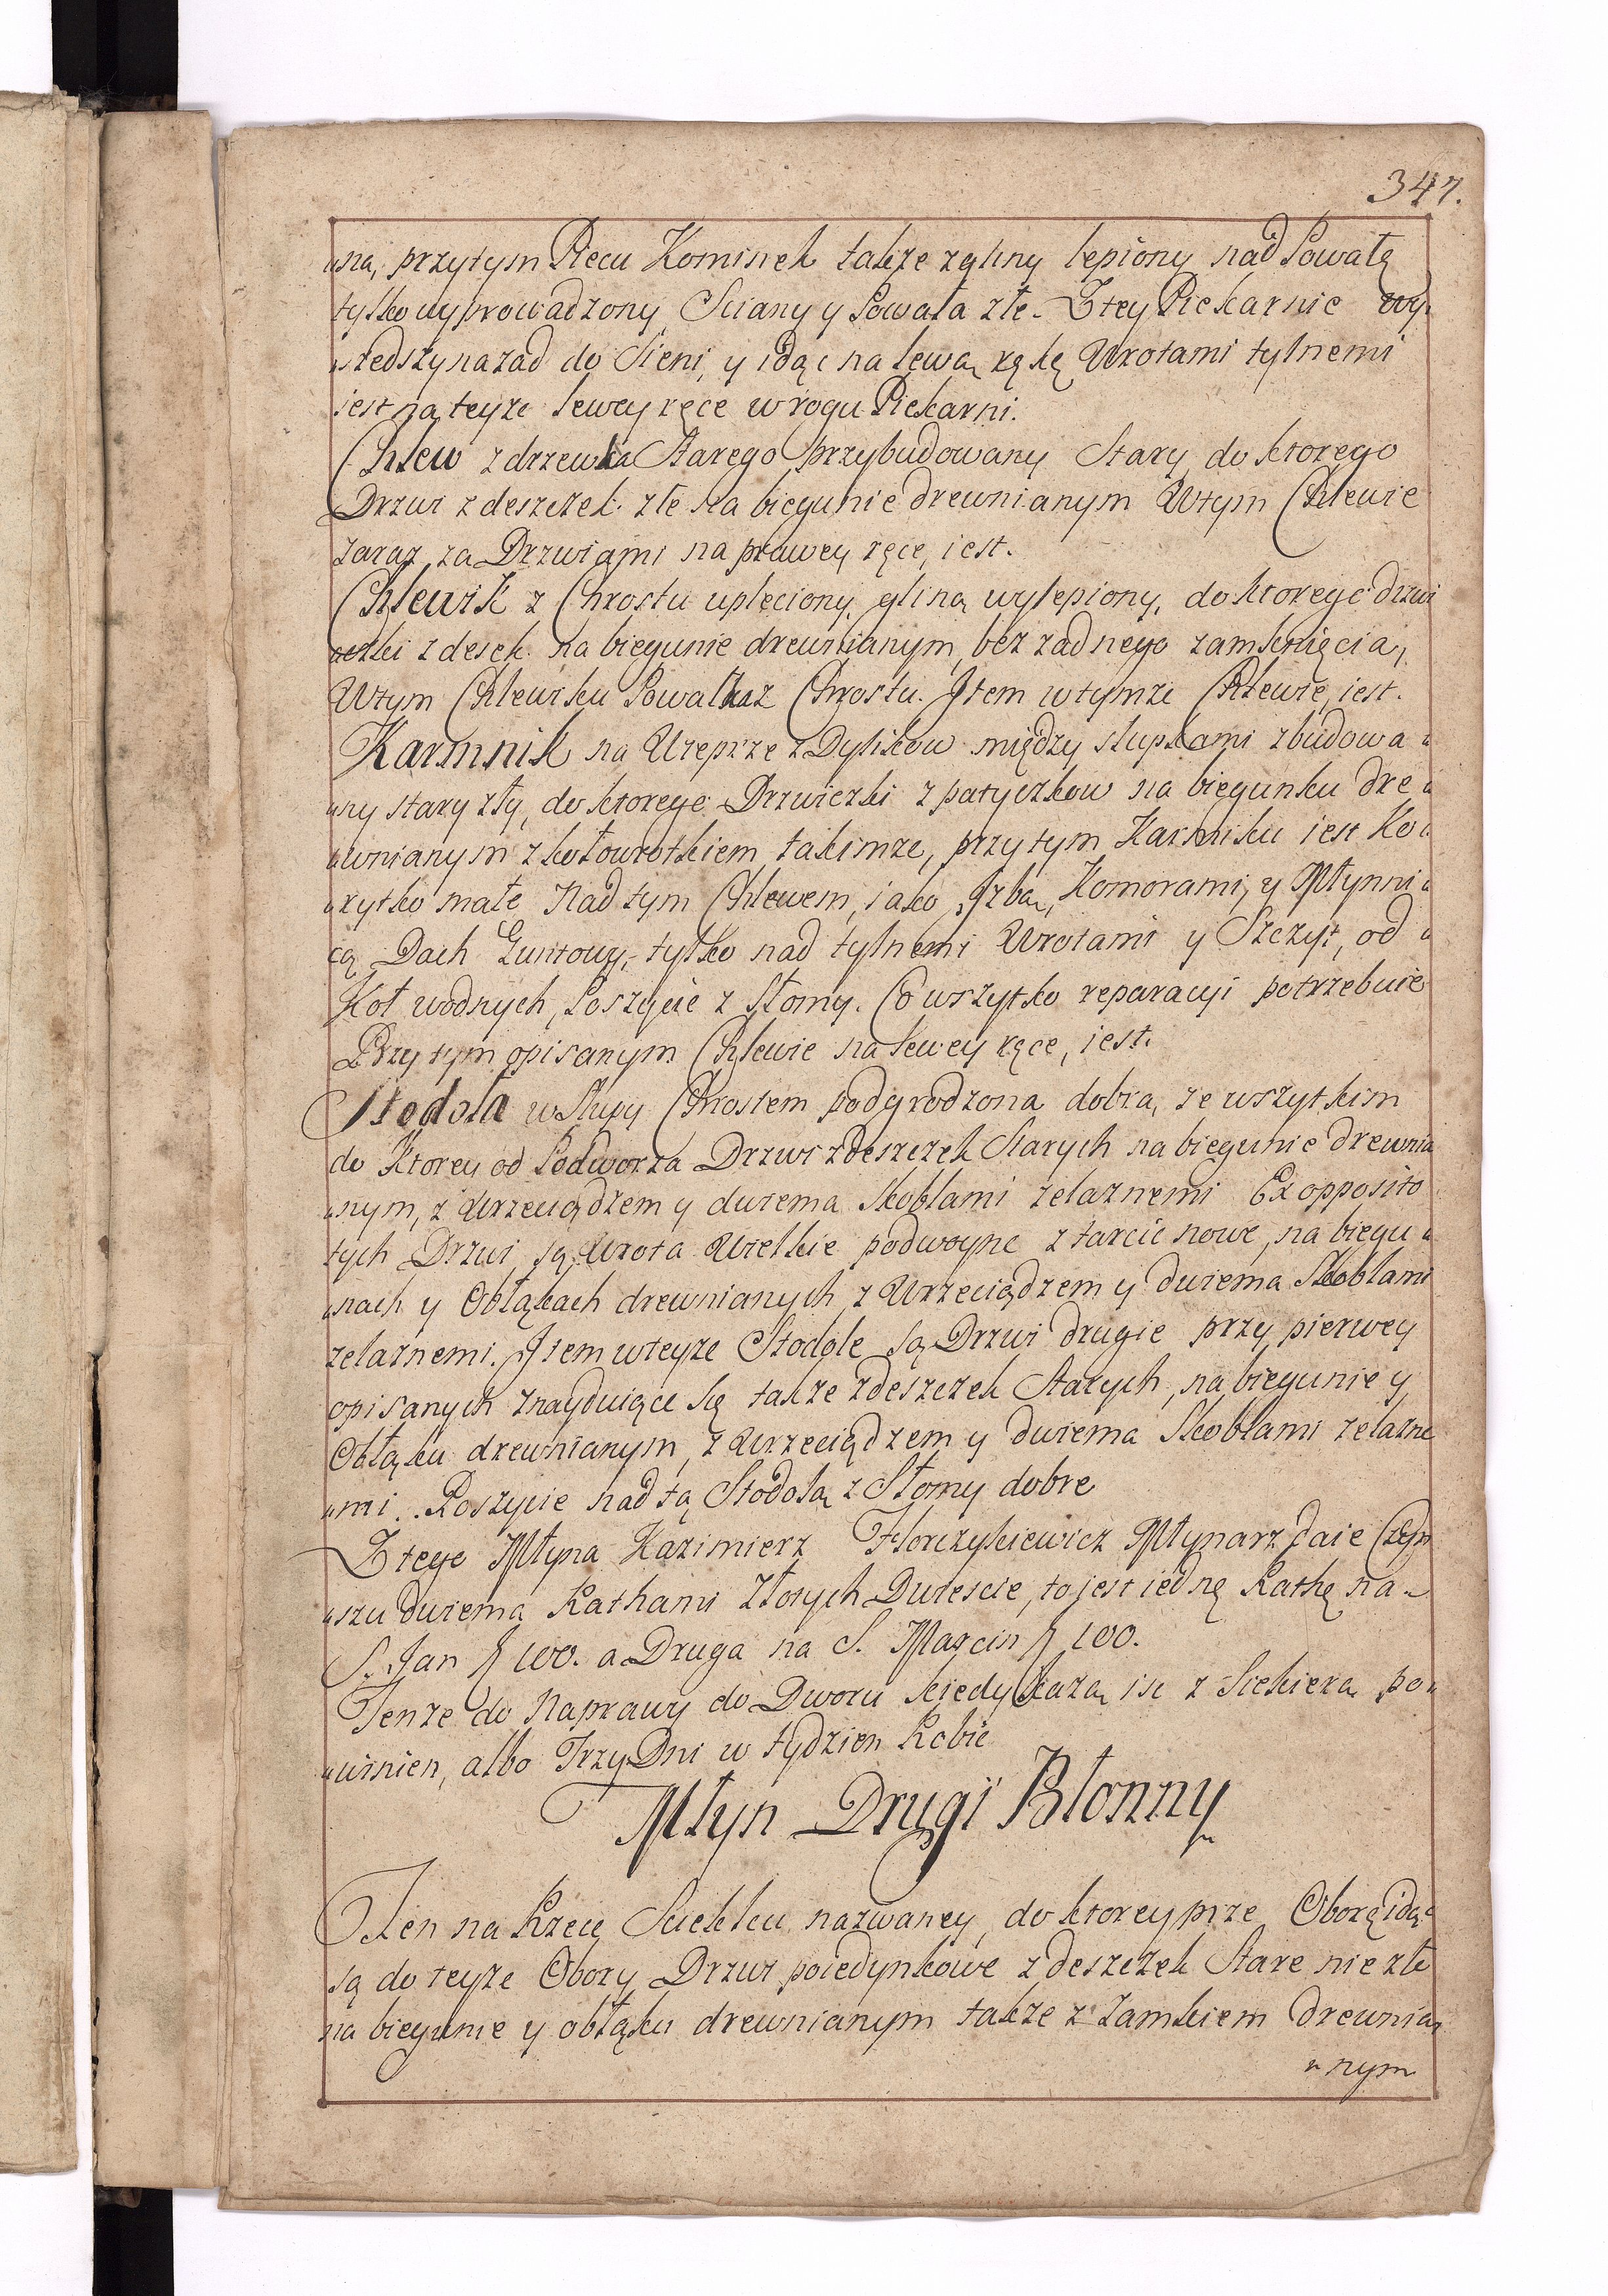 347.
„na, przytym Piecu Kominek także z gliny lepiony nad Powałę
tylko wyprowadzony, Sciany y Powała złe. Z tey Piekarnie wy„
„szedszy nazad do Sieni, y idąc na lewą rękę Wrotami tylnemi
iest na teyże lewey ręce w rogu Piekarni.
Chlew z drzewka Starego przybudowany Stary, do ktorego
Drzwi z deszczek złe na biegunie drewnianym Wtym Chlewie
zaraz, za Drzwiami na prawey ręce, iest.
Chlewik z Chrostu upleciony, gliną wylepiony, do ktorego drzwi
czki z desek na biegunie drewnianym, bez zadnego zamknięcia,
Wtym Chlewiku Powałka z Chrostu. Item w tymże Chlewie, iest.
Karmnik na Wieprze z Dylikow między słupkami zbudowa„
„ny stary zły, do ktorego Drzwiczki z patyczkow na biegunku dre„
„wnianym z kołowrotkiem takimże, przy tym Karmiku iest Ko„
„rytko małe Nad tym Chlewem, iako, Izbą, Komorami, y Młynni„
cą Dach Guntowy, tylko nad tylnemi Wrotami y Szczyt, od„
Koł wodnych, Poszycie z Słomy. Co wszytko reparacyi potrzebuie
Przy tym opisanym Chlewie na lewey ręce, iest.
Stodoła w Słupy Chrostem podgrodzona dobra, ze wszytkim
do Ktorey od Podworza Drzwi z deszczek Starych na biegunie drewnia
„nym, z Wrzeciądzem y dwiema Skoblami żelaznemi Ex opposito
tych Drzwi są Wrota Wielkie podwoyne z tarcic nowe, na biegu„
„nach y Obłąkach drewnianych, z Wrzeciądzem y dwiema Skoblami
żelaznemi. Item w teyże Stodole są Drzwi drugie przy pierwey
opisanych znayduiące się także z deszczek Starych, na biegunie y
Obłąku drewnianym, z Wrzeciądzem y dwiema Skoblami żelazne
„mi. Poszycie nad tą Stodołą z Słomy dobre
Z tego Młyna Kazimierz Florczykiewicz Młynarz daie Czyn
„szu dwiema Rathami Złotych Dwiescie, to jest iednę Rathę na
S. Jan f 100. a Druga na S. Marcin f 100.
Tenże do Naprawy do Dworu kiedy Każą iść z Siekierą po„
„winien, albo Trzy Dni w tydzien Robić
Młyn Drugi Błonny
Ten na Rzece Sciekku nazwaney, do ktorey prze Oborę idąc
są do teyże Obory Drzwi poiedynkowe z deszczek Stare nie złe
na biegunie y obłąku drewnianym także z Zamkiem drewnia„
„nym